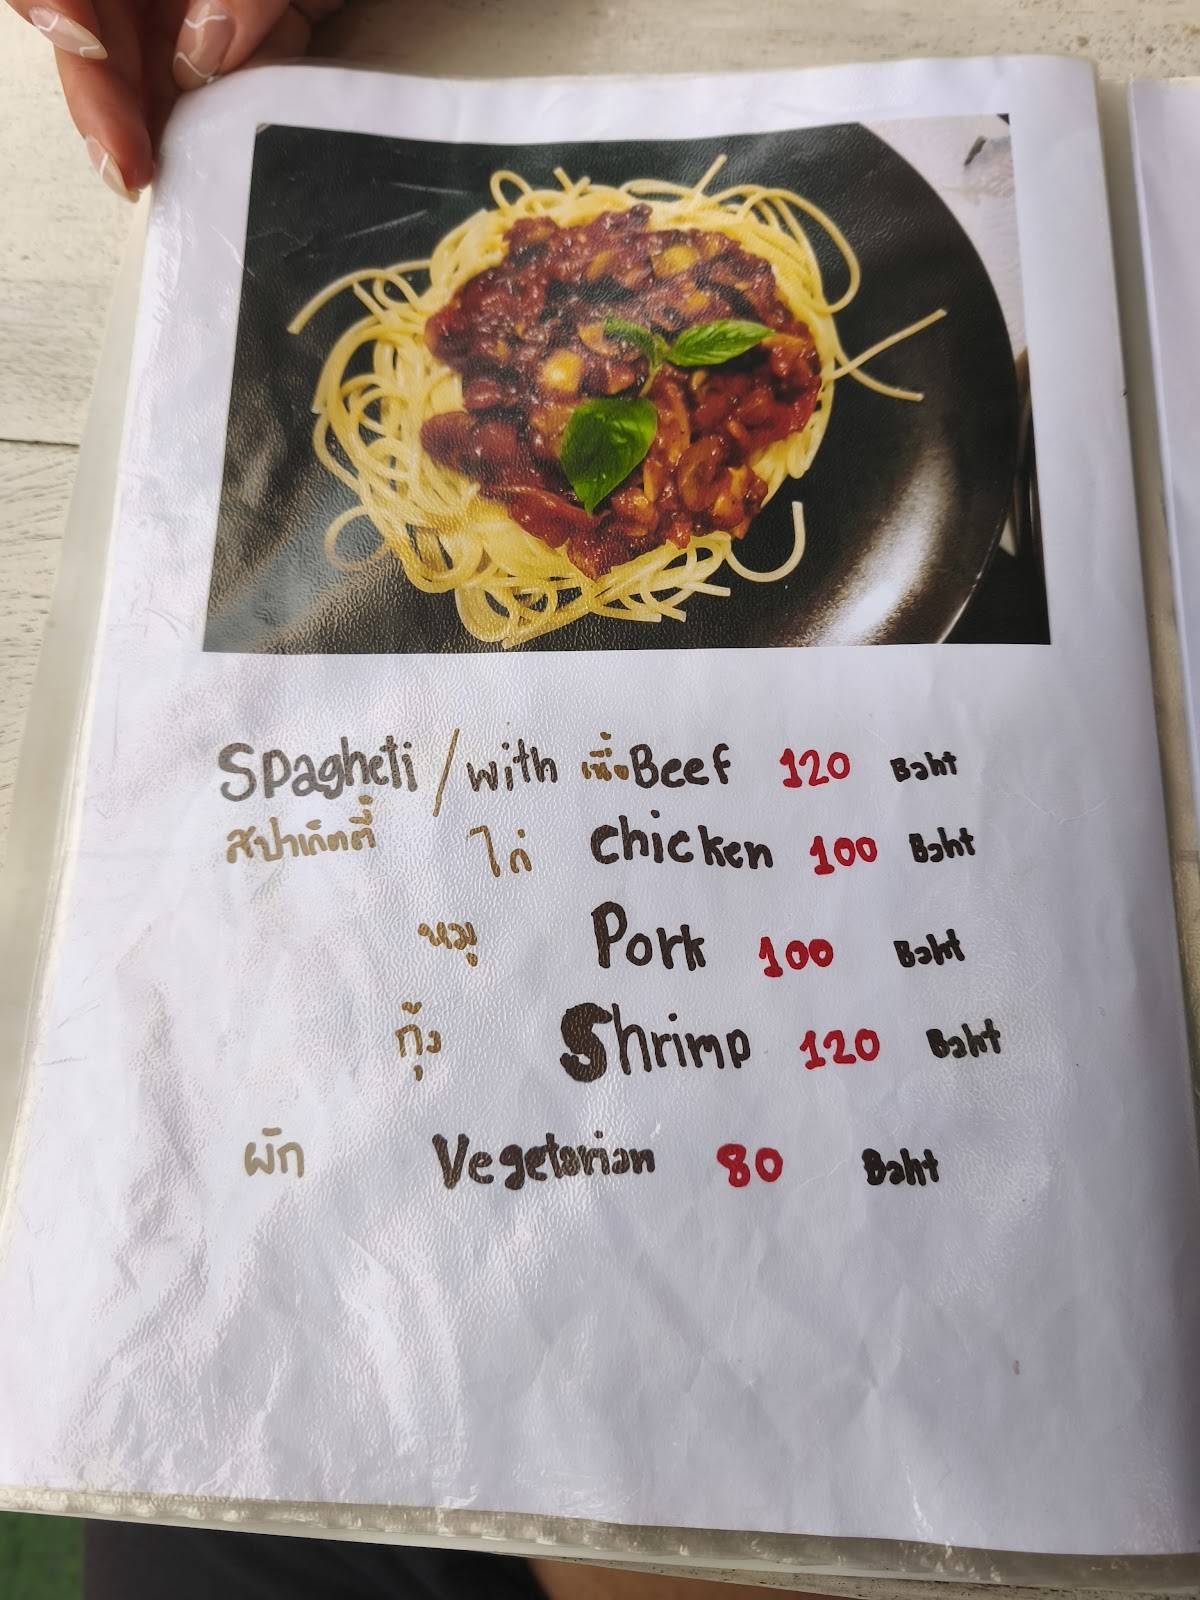 Spagheti / with เนื้อ Beef 120 Baht
สปาเก็ตตี้ ไก่ chicken 100 Baht
หมู Pork 100 Baht
กุ้ง Shrimp 120 Baht
ผัก Vegetarian 80 Baht